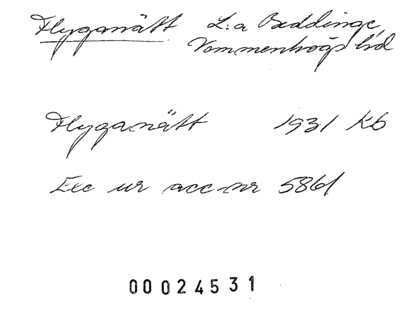 Flyganätt L:a Beddinge,
Vemmenhögs hd
Flyganätt 1931 Kb
Exc ur acc-nr 5861
00024531